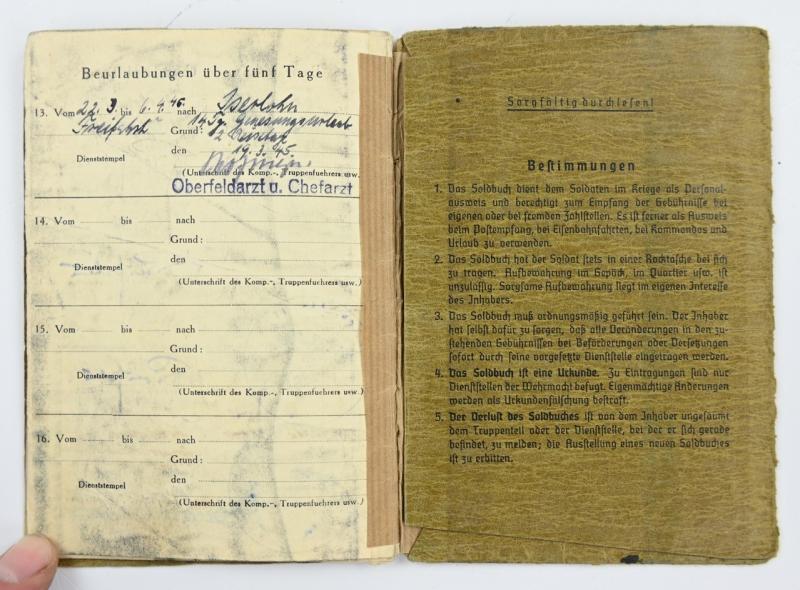 Beurlaubungen über fünf Tage
13. Vom 22. 3. bis 6. 4. 45. nach Iserlohn
Freifahrt Grund: 14 Tg. Genesungsurlaub
2 Reisetag
Dienststempel den 19. 3. 45.
(Unterschrift des Komp.-, Truppenfuehrers usw.)
Oberfeldarzt u. Chefarzt
14. Vom bis nach
Grund:
Dienststempel den
(Unterschrift des Komp.-, Truppenfuehrers usw.)
15. Vom bis nach
Grund:
Dienststempel den
(Unterschrift des Komp.-, Truppenfuehrers usw.)
16. Vom bis nach
Grund:
Dienststempel den
(Unterschrift des Komp.-, Truppenfuehrers usw.)
Sorgfältig durchlesen!
Bestimmungen
1. Das Soldbuch dient dem Soldaten im Kriege als Personal-
ausweis und berechtigt zum Empfang der Gebührnisse bei
eigenen oder bei fremden Zahlstellen. Es ist ferner als Ausweis
beim Postempfang, bei Eisenbahnfahrten, bei Kommandos und
Urlaub zu verwenden.
2. Das Soldbuch hat der Soldat stets in einer Rocktasche bei sich
zu tragen. Aufbewahrung im Gepäck, im Quartier usw. ist
unzulässig. Sorgsame Aufbewahrung liegt im eigenen Interesse
des Inhabers.
3. Das Soldbuch muß ordnungsmäßig geführt sein. Der Inhaber
hat selbst dafür zu sorgen, daß alle Veränderungen in den zu-
stehenden Gebührnissen bei Beförderungen oder Versetzungen
sofort durch seine vorgesetzte Dienststelle eingetragen werden.
4. Das Soldbuch ist eine Urkunde. Zu Eintragungen sind nur
Dienststellen der Wehrmacht befugt. Eigenmächtige Änderungen
werden als Urkundenfälschung bestraft.
5. Der Verlust des Soldbuches ist von dem Inhaber ungesäumt
dem Truppenteil oder der Dienststelle, bei der er sich gerade
befindet, zu melden; die Ausstellung eines neuen Soldbuches
ist zu erbitten.